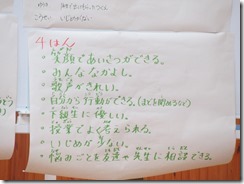 こうせい いじめがない
4はん
・笑顔であいさつができる。
・みんななかよし。
・歌声がきれい。
・自分から行動ができる。
・下級生に優しい。
・授業でよく考えられる。
・いじめが少ない。
・悩みごとを友達や先生に相談できる。